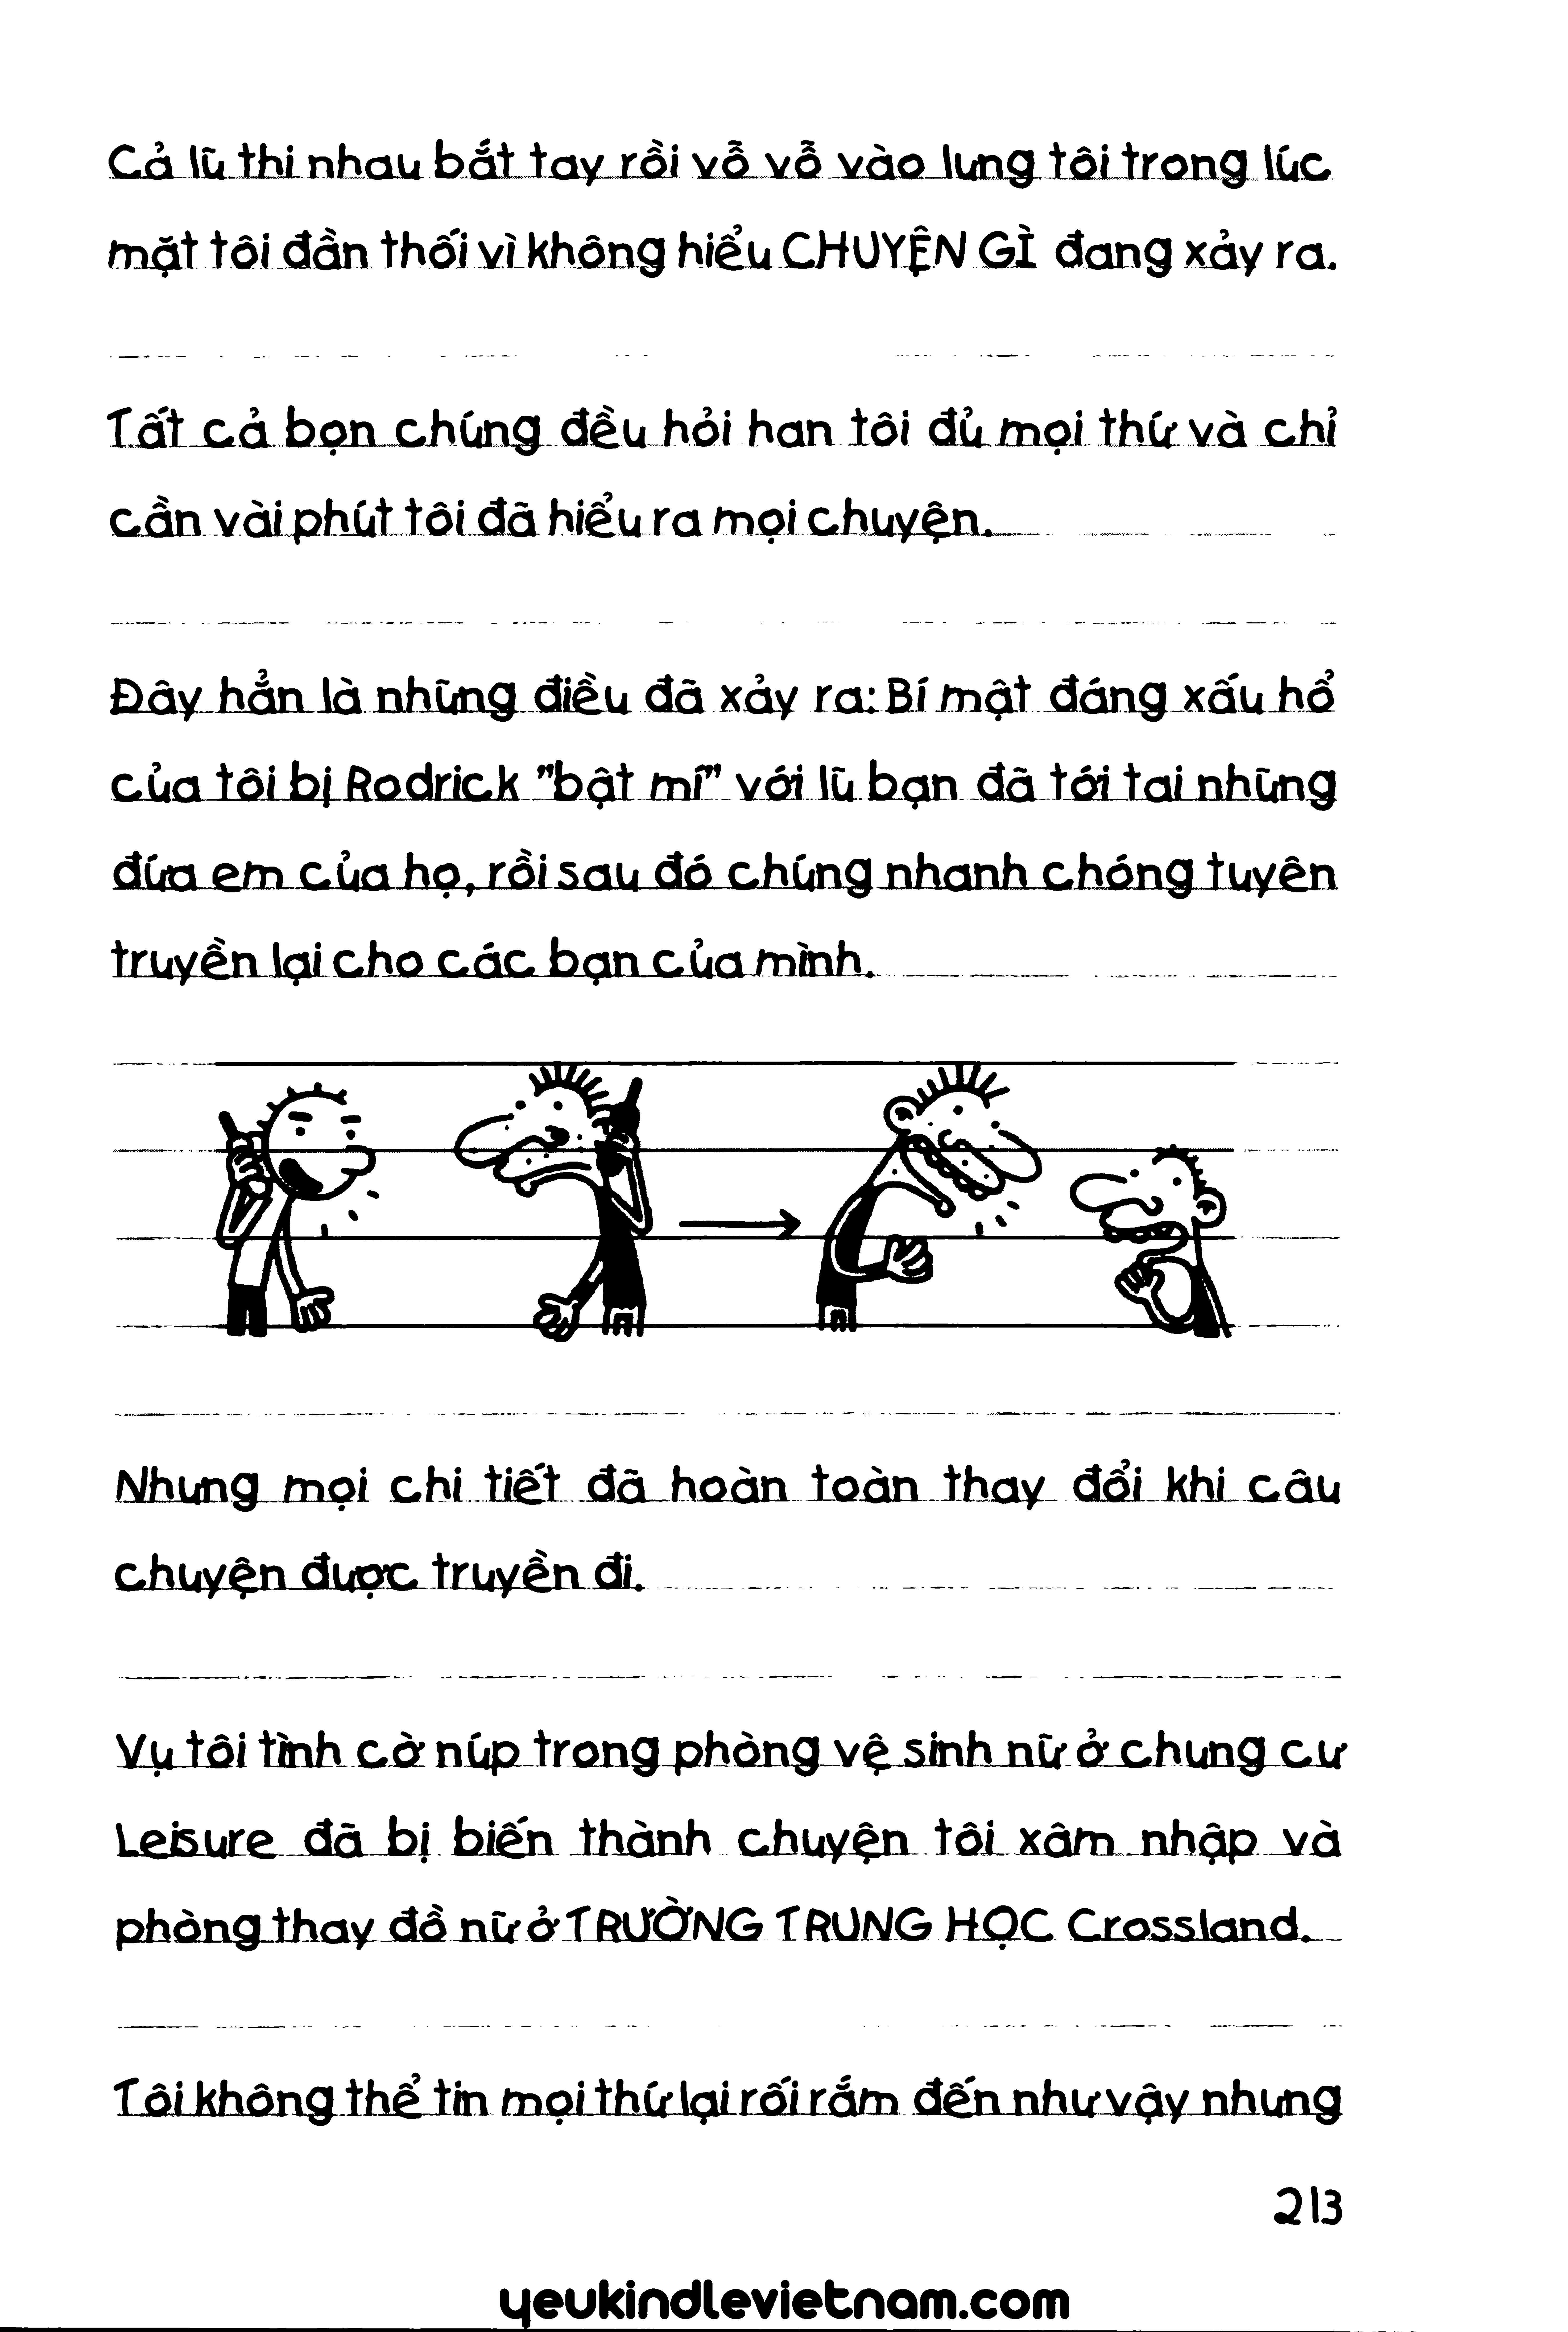 Cả lũ thi nhau bắt tay rồi vỗ vỗ vào lưng tôi trong lúc
mặt tôi đần thối vì không hiểu CHUYỆN GÌ đang xảy ra.
Tất cả bọn chúng đều hỏi han tôi đủ mọi thứ và chỉ
cần vài phút tôi đã hiểu ra mọi chuyện.
Đây hẳn là những điều đã xảy ra: Bí mật đáng xấu hổ
của tôi bị Rodrick "bật mí" với lũ bạn đã tới tai những
đứa em của họ, rồi sau đó chúng nhanh chóng tuyên
truyền lại cho các bạn của mình.
Nhưng mọi chi tiết đã hoàn toàn thay đổi khi câu
chuyện được truyền đi.
Vụ tôi tình cờ núp trong phòng vệ sinh nữ ở chung cư
Leisure đã bị biến thành chuyện tôi xâm nhập và
phòng thay đồ nữ ở TRƯỜNG TRUNG HỌC Crossland.
Tôi không thể tin mọi thứ lại rối rắm đến như vậy nhưng
213
yeukindlevietnam.com